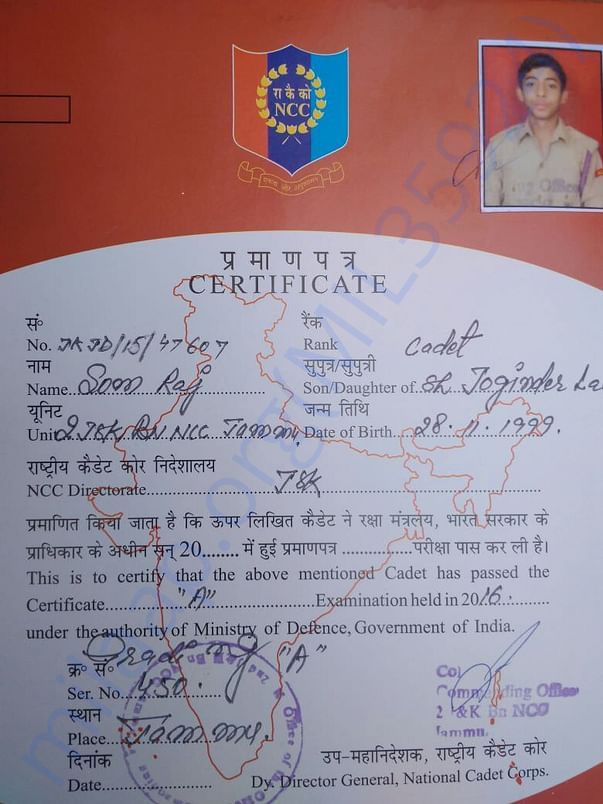 रा कै को
NCC
एकता और अनुशासन
प्रमाणपत्र
CERTIFICATE
सं०
No. JKJD/15/47607
रैंक
Rank Cadet
नाम
Name Som Raj
सुपुत्र/सुपुत्री
Son/Daughter of Sh Joginder La
यूनिट
Unit 2 J&K BN NCC Jammu
जन्म तिथि
Date of Birth 28.11.1999.
राष्ट्रीय कैडेट कोर निदेशालय
NCC Directorate J&K
प्रमाणित किया जाता है कि ऊपर लिखित कैडेट ने रक्षा मंत्रलेय, भारत सरकार के
प्राधिकार के अधीन सन् 20........ में हुई प्रमाणपत्र ...............परीक्षा पास कर ली है।
This is to certify that the above mentioned Cadet has passed the
Certificate "A" Examination held in 2016.
under the authority of Ministry of Defence, Government of India.
Grading "A"
क्र० सं०
Ser. No. 450.
स्थान
Place Jammu.
दिनांक
Date
Col
Commending Officer
2 J&K Bn NCC
Jammu.
उप-महानिदेशक, राष्ट्रीय कैडेट कोर
Dy. Director General, National Cadet Corps.